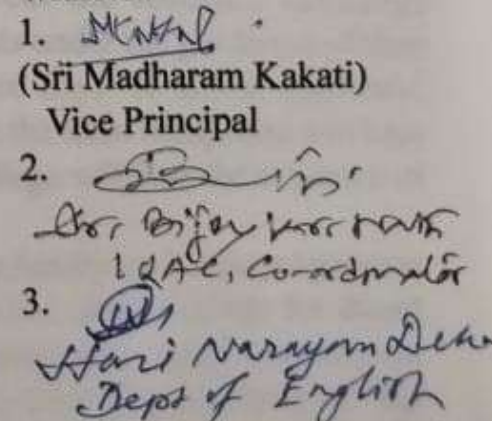 1.
(Sri Madharam Kakati)
Vice Principal
2.
Dr. Bijoy Kr. Nath
IQAC, Co-ordinator
3.
Hari Narayan Deka
Dept of English